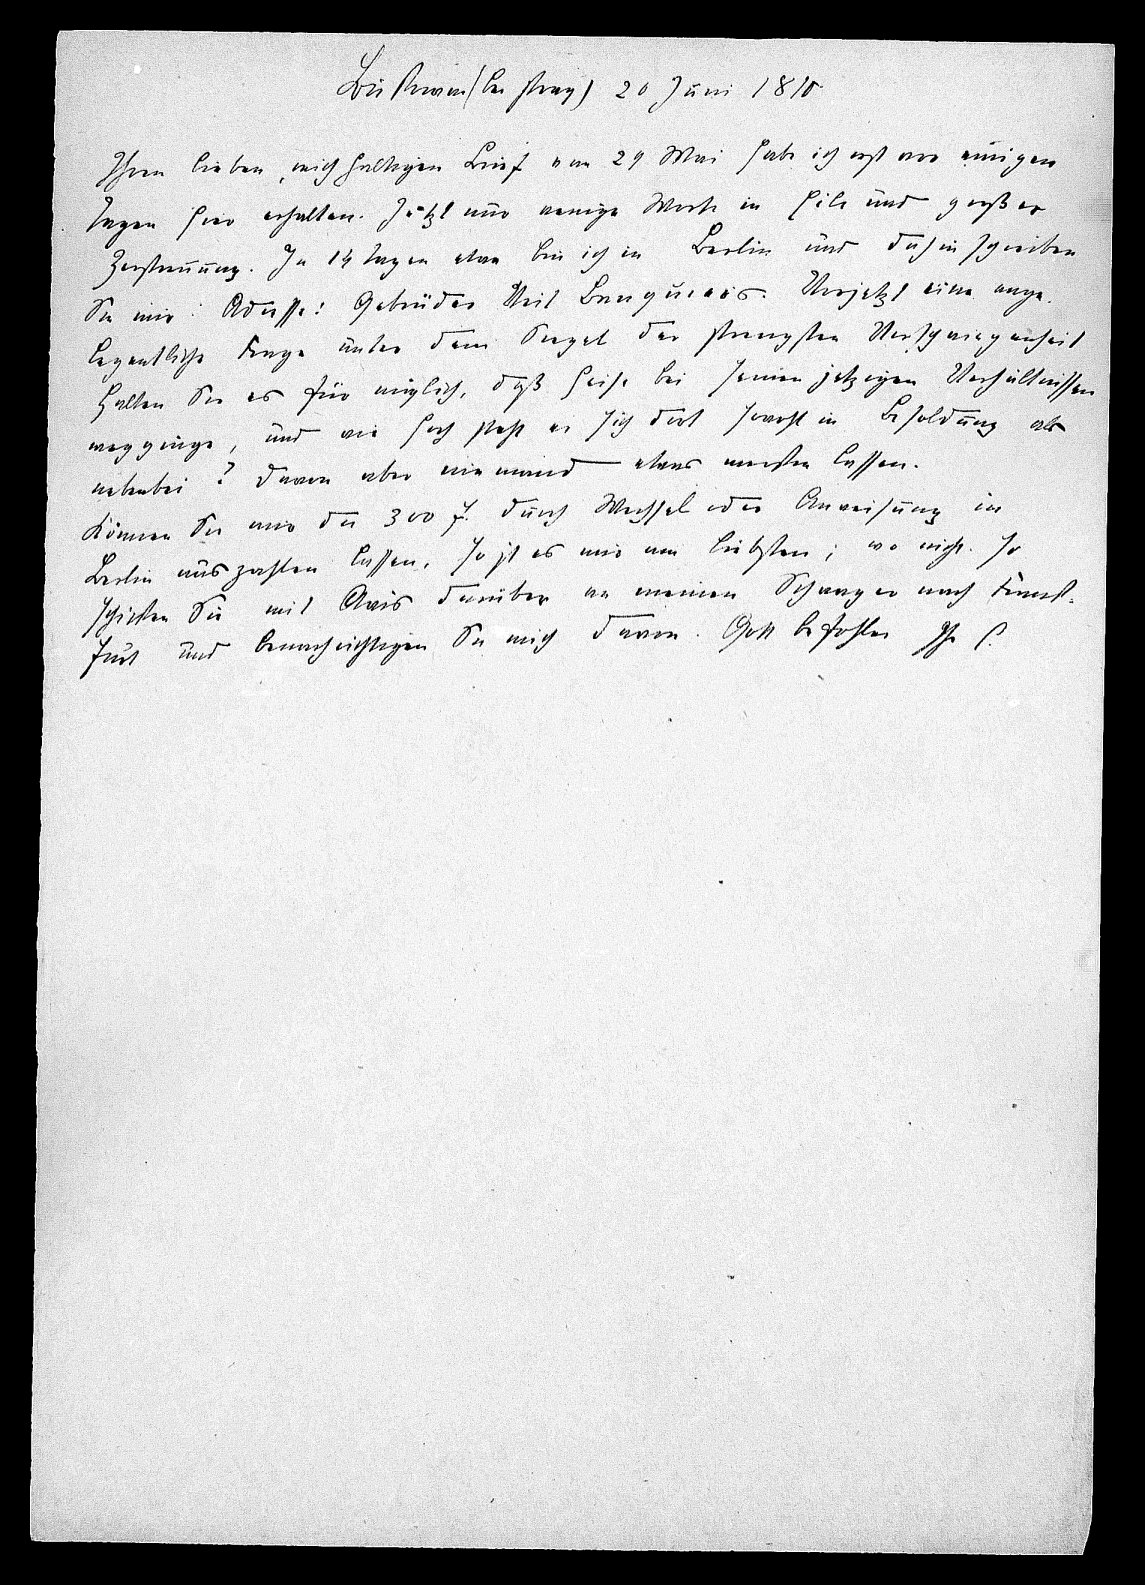 Bustrowan (bei Prag) 20 Juni 1810
Ihren lieben, reichhaltigen Brief vom 29 Mai habe ich erst vor einigen
Tagen hier erhalten. Jetzt nur wenige Worte in Eile und großer
Zerstreuung. In 14 Tagen etwa bin ich in Berlin und dahin schreiben
Sie mir. Adresse: Gebrüder Veit Banquiers. Vorjetzt eine ange-
legentliche Frage unter dem Siegel der strengsten Verschwiegenheit
Halten Sie es für möglich, daß Heise bei seinen jetzigen Verhältnissen
wegginge, und wie hoch steht er sich dort sowohl in Besoldung als
nebenbei? Davon aber niemand etwas merken lassen.
Können Sie mir die 300 f. durch Wechsel oder Anweisung in
Berlin auszahlen lassen, so ist es mir am liebsten; wo nicht. so
schicken Sie mit Avis darüber an meinen Schwager nach Frank-
furt und benachrichtigen Sie mich davon. Gott befohlen Ihr S.